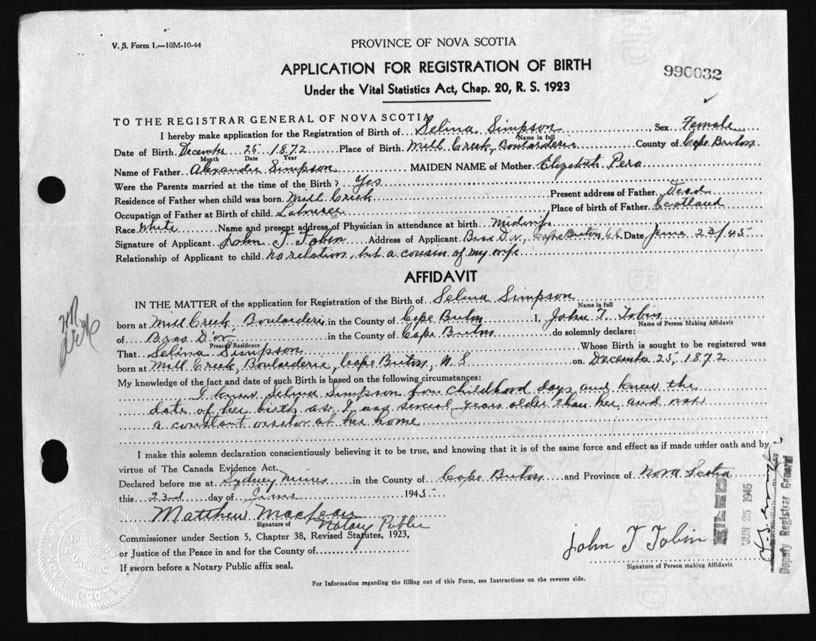 V. S. Form 1.—10M-10-44
PROVINCE OF NOVA SCOTIA
APPLICATION FOR REGISTRATION OF BIRTH
990032
Under the Vital Statistics Act, Chap. 20, R. S. 1923
TO THE REGISTRAR GENERAL OF NOVA SCOTIA
I hereby make application for the Registration of Birth of Selina Simpson Sex Female
Name in full
Date of Birth December 25 1872 Place of Birth Mill Creek, Boularderie County of Cape Breton
Month Date Year
Name of Father Alexander Simpson MAIDEN NAME of Mother Elizabeth
Were the Parents married at the time of the Birth? Yes Present address of Father Dead
Residence of Father when child was born Mill Creek Place of birth of Father Scotland
Occupation of Father at Birth of child Laborer
Race White Name and present address of Physician in attendance at birth Midwife
Signature of Applicant John T Tobin Address of Applicant Bras D'or, Cape Breton Co. Date June 23/45
Relationship of Applicant to child no relation, but a cousin of my wife
AFFIDAVIT
IN THE MATTER of the application for Registration of the Birth of Selina Simpson
Name in full
born at Mill Creek Boularderie in the County of Cape Breton I, John T. Tobin
Name of Person Making Affidavit
of Bras D'or in the County of Cape Breton do solemnly declare:
Present Residence
That Selina Simpson Whose Birth is sought to be registered was
born at Mill Creek, Boularderie, Cape Breton, N.S. on December 25, 1872
My knowledge of the fact and date of such Birth is based on the following circumstances:
I knew Selina Simpson from childhood days and knew the
date of her birth as I was several years older than her and was
a constant visitor at her home
I make this solemn declaration conscientiously believing it to be true, and knowing that it is of the same force and effect as if made under oath and by
virtue of The Canada Evidence Act.
Declared before me at Sydney Mines in the County of Cape Breton and Province of Nova Scotia
this 23rd day of June 1945
Matthew MacLean
Signature of Notary Public
Commissioner under Section 5, Chapter 38, Revised Statutes, 1923,
or Justice of the Peace in and for the County of
If sworn before a Notary Public affix seal.
John T Tobin
Signature of Person making Affidavit
FILED
JUN 25 1945
Deputy Registrar General
For Information regarding the filling out of this Form, see Instructions on the reverse side.